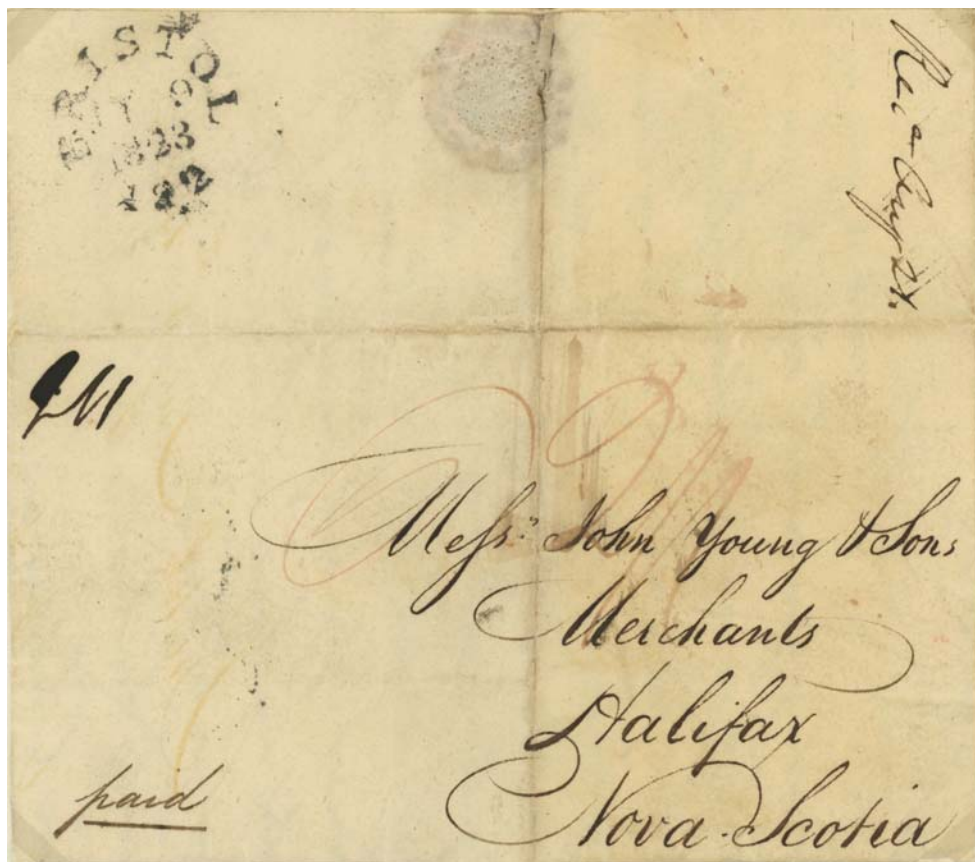 BRISTOL
1823
122
Rec^d Aug 21.
Mess^rs John Young & Sons
Merchants
Halifax
Nova Scotia
paid